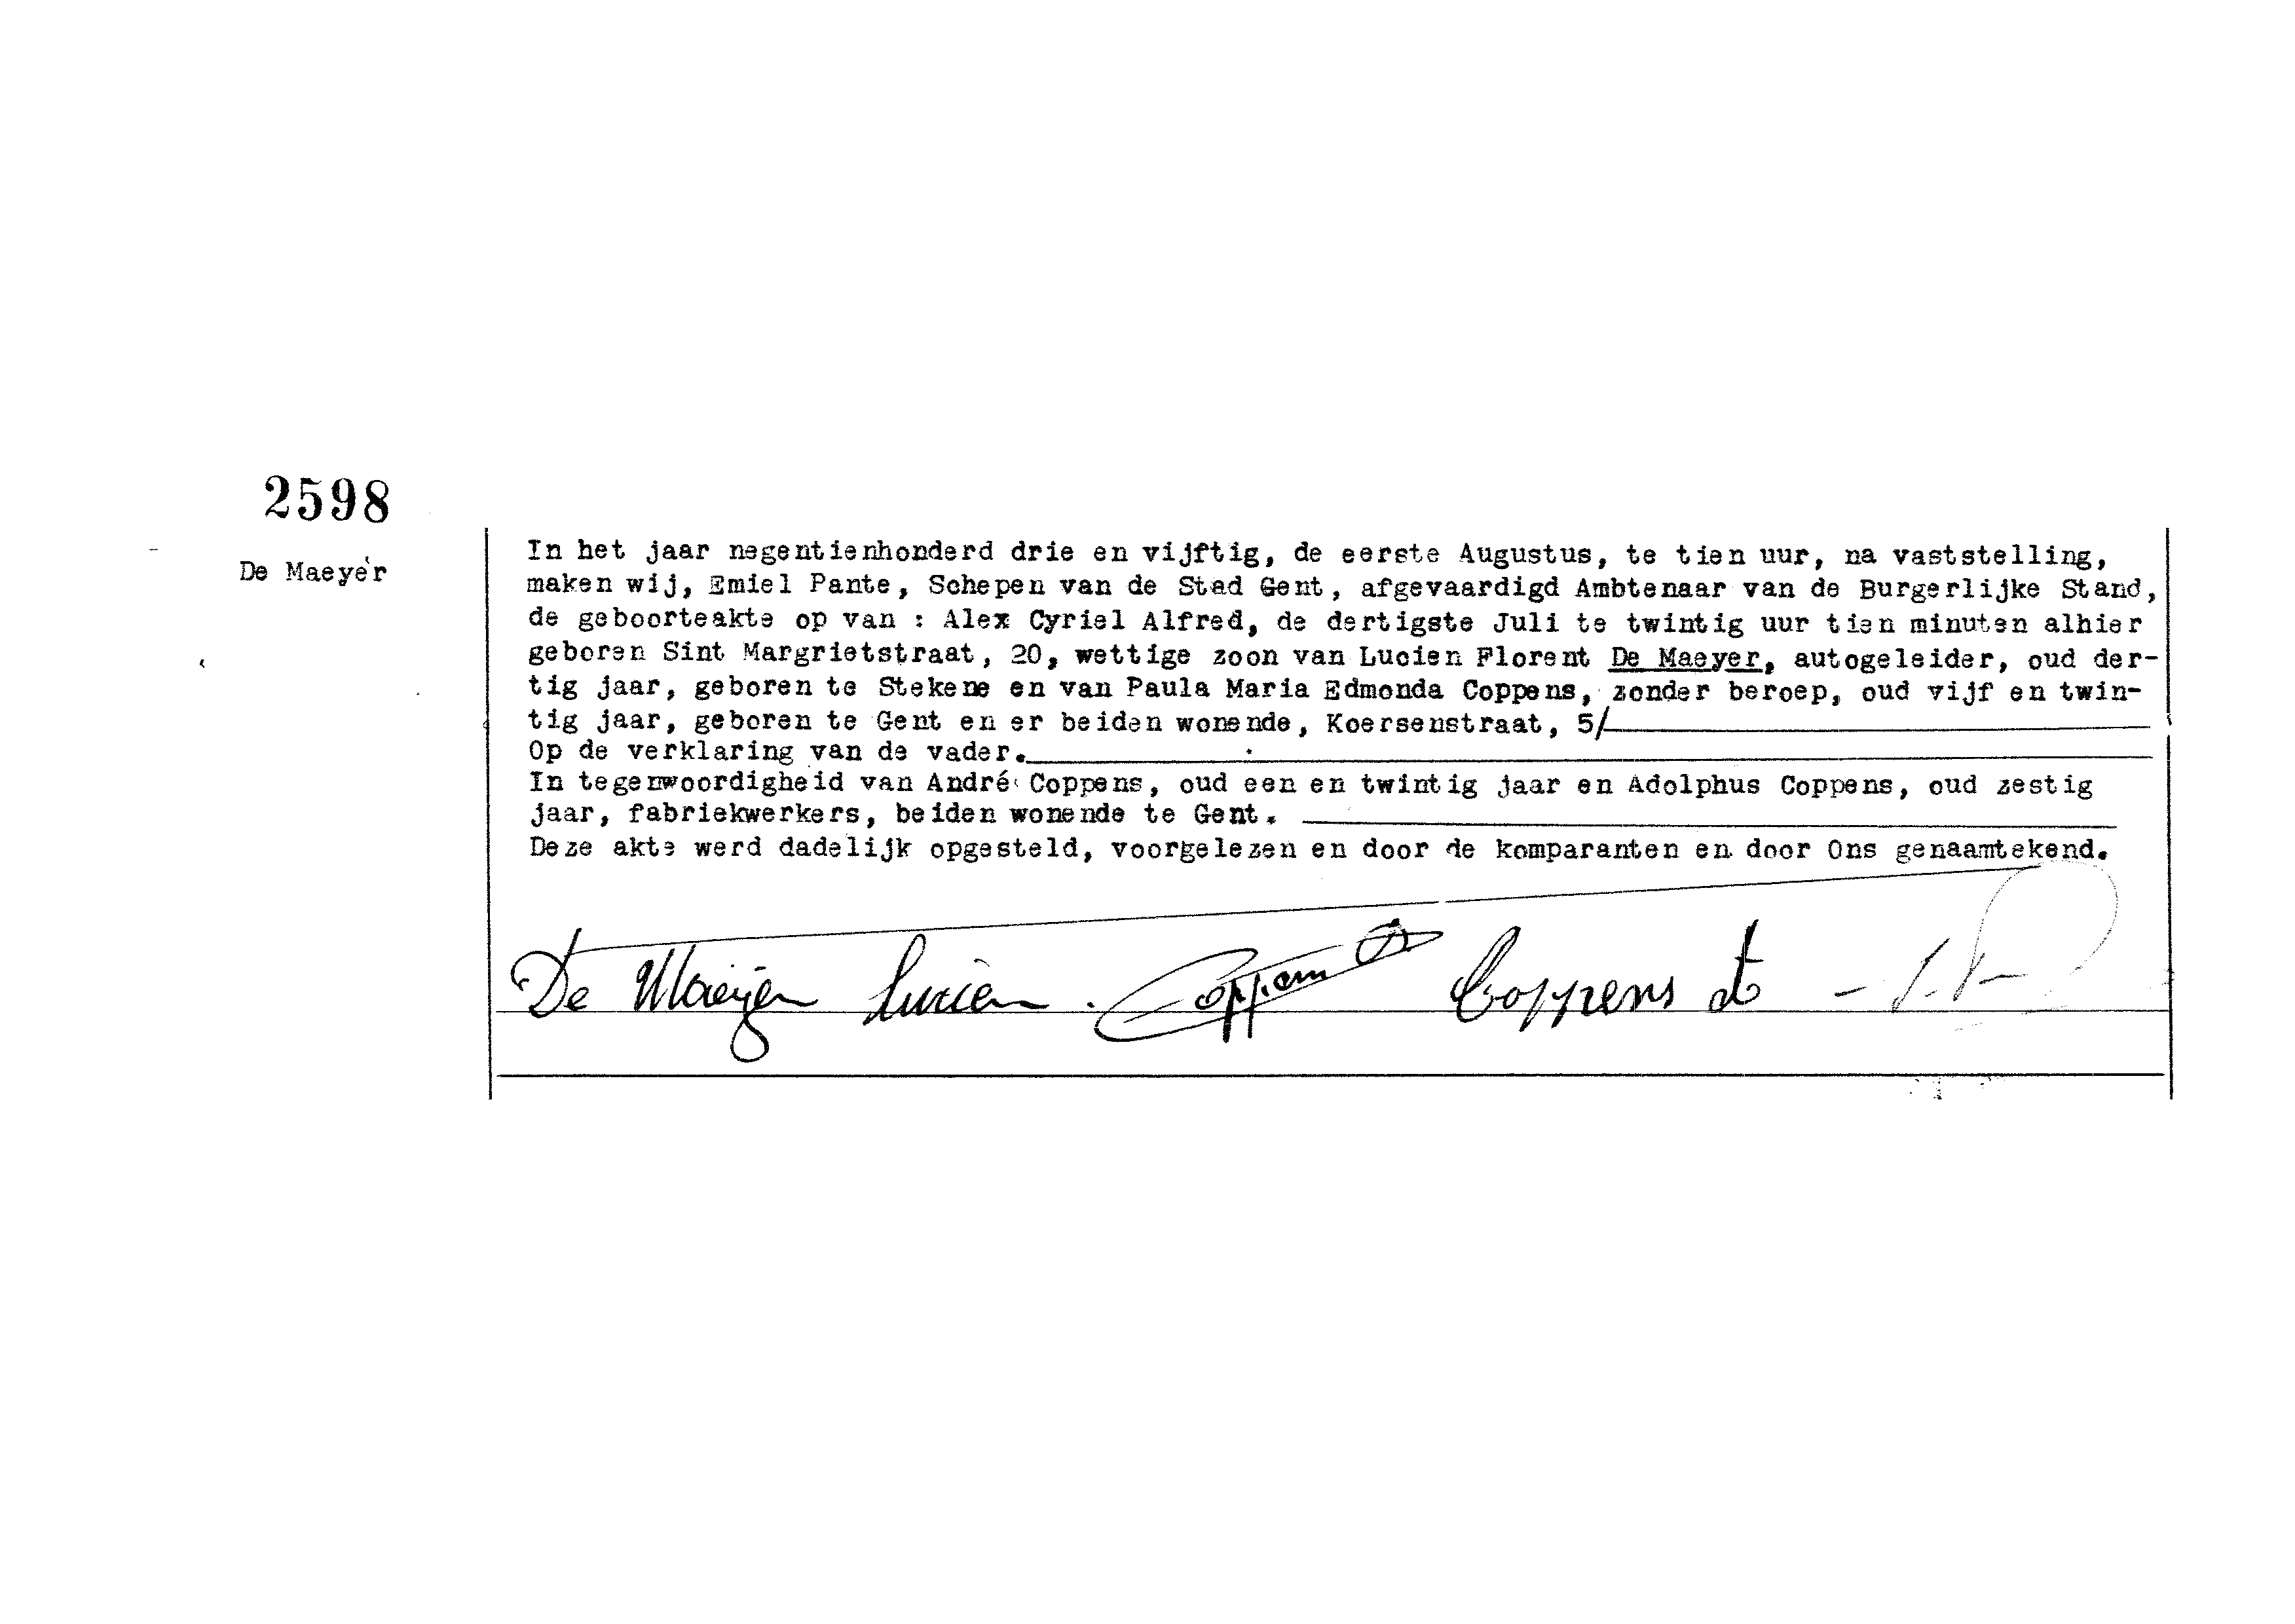 2598
De Maeyer
In het jaar negentienhonderd drie en vijftig, de eerste Augustus, te tien uur, na vaststelling,
maken wij, Emiel Pante, Schepen van de Stad Gent, afgevaardigd Ambtenaar van de Burgerlijke Stand,
de geboorteakte op van : Alex Cyriel Alfred, de dertigste Juli te twintig uur tien minuten alhier
geboren Sint Margrietstraat, 20, wettige zoon van Lucien Florent De Maeyer, autogeleider, oud der-
tig jaar, geboren te Stekene en van Paula Maria Edmonda Coppens, zonder beroep, oud vijf en twin-
tig jaar, geboren te Gent en er beiden wonende, Koersenstraat, 5/
Op de verklaring van de vader.
In tegenwoordigheid van André Coppens, oud een en twintig jaar en Adolphus Coppens, oud zestig
jaar, fabriekwerkers, beiden wonende te Gent.
Deze akte werd dadelijk opgesteld, voorgelezen en door de komparanten en door Ons genaamtekend.
De Maeyer Lucien. Coppens Coppens